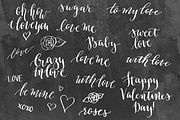 oh how
I love you
sugar
to my love
love
Baby
sweet
love
love
crazy
in love
with love
LOVE
be mine
love
with love
xoxo
roses
Happy
Valentines
Day!